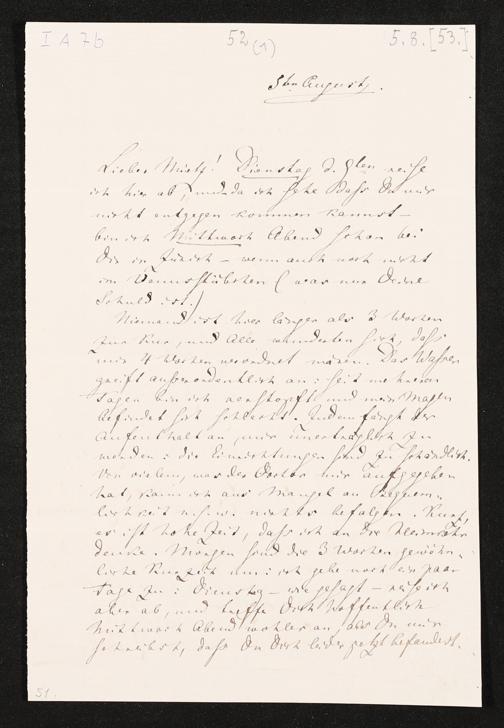 I A 7b
52
(1)
5.8.[53.]
5ten August.
Lieber Mietz! Dienstag d. 9ten reise
ich hier ab, und da ich sehe dass Du mir
nicht entgegen kommen kannst –
bin ich Mittwoch Abend schon bei
Dir in Zürich – wenn auch noch nicht
im Venusstübchen (was nur Deine
Schuld ist.)
Niemand ist hier länger als 3 Wochen
zur Kur, und Alle wunderten sich, dass
mir 4 Wochen verordnet wären. Das Wasser
greift außerordentlich an: seit mehreren
Tagen bin ich verstopft und mein Magen
befindet sich schlecht. Zudem fängt der
Aufenthalt an, mir unerträglich zu
werden: die Einrichtungen sind zu schändlich.
Von vielem, was der Doctor mir aufgegeben
hat, kann ich aus Mangel an Bequem-
lichkeit nichts befolgen. Kurz,
es ist hohe Zeit, dass ich an die Heimkehr
denke. Morgen sind die 3 Wochen gewöhn-
liche Kurzeit um: ich gebe noch ein paar
Tage zu: Dienstag – wie gesagt – reise ich
aber ab, und treffe Dich hoffentlich
Mittwoch Abend wohler an, als Du mir
schreibst, dass Du Dich leider jetzt befändest.
51.